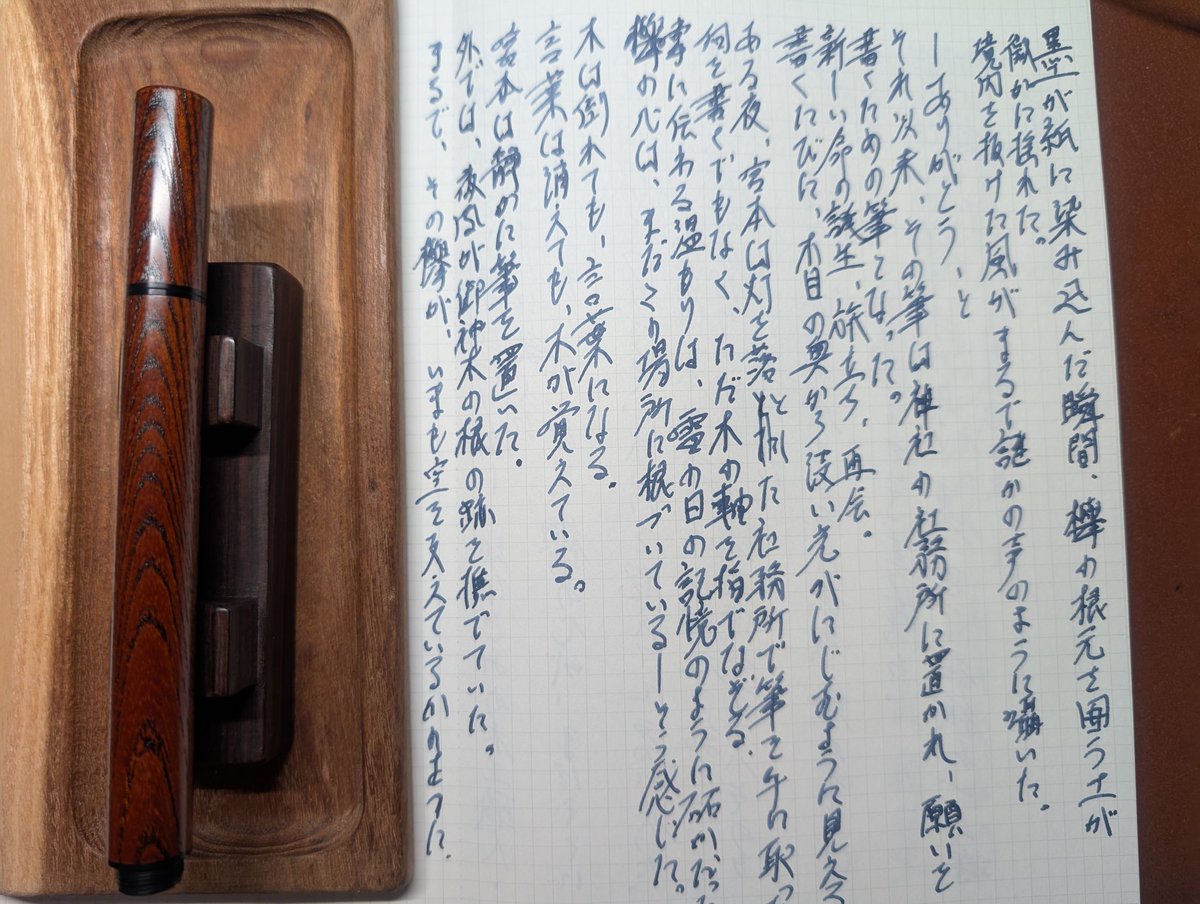 墨が紙に染み込んだ瞬間、欅の根元を囲う土が
微かに揺れた。
境内を抜けた風がまるで誰かの声のように囁いた。
―ありがとう、と
それ以来、その筆は神社の社務所に置かれ、願いを
書くための筆となった。
新しい命の誕生、旅立ち、再会。
書くたびに、木目の奥から淡い光がにじむように見える
ある夜、宮本は灯を落とした社務所で筆を手に取っ
何を書くでもなく、ただ木の軸を指でなぞる。
掌に伝わる温もりは、雪の日の記憶のように確かだっ
欅の心は、まだこの場所に根づいている―そう感じた。
木は倒れても、言葉になる。
言葉は消えても、木が覚えている。
宮本は静かに筆を置いた。
外では、夜風が御神木の根の跡を撫でていた。
まるで、その欅が、いまも空を支えているかのように。